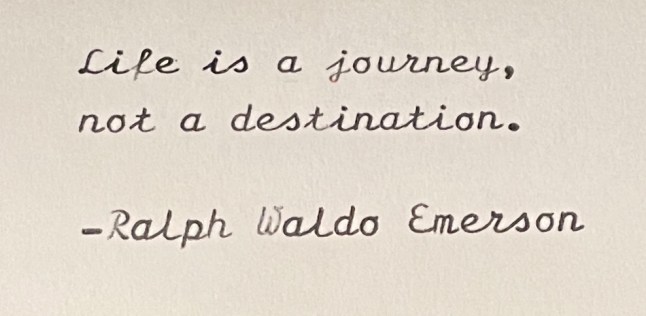 Life is a journey,
not a destination.
-Ralph Waldo Emerson